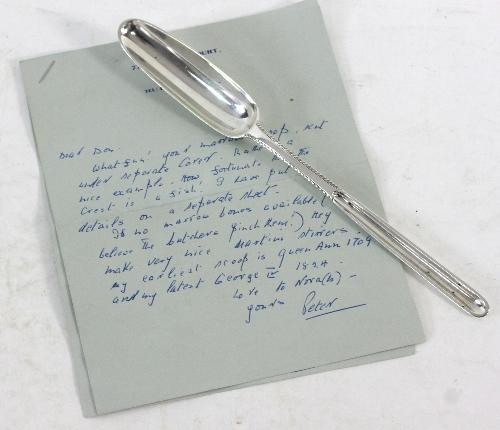 COURT,
Dear Don.
What fun! your marrow scoop, sent
under separate cover. Rather a
nice example. How fortunate the
Crest is a fish! I have put
details on a separate sheet.
If no marrow bones available (
believe the butchers pinch them!) they
make very nice Martini stirrers.
My earliest scoop is Queen Ann 1709
and my latest George IV 1824.
Love to Nora(h) -
yours Peter